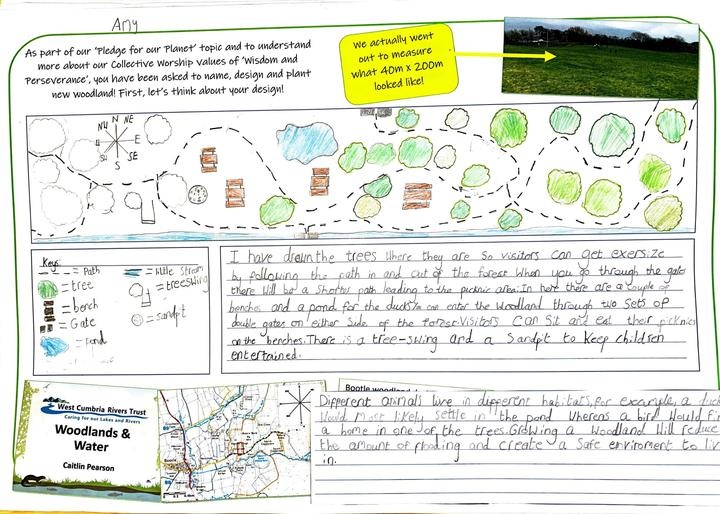 Amy
As part of our 'Pledge for our Planet' topic and to understand
more about our Collective Worship values of 'Wisdom and
Perseverance', you have been asked to name, design and plant
new woodland! First, let's think about your design!
We actually went
out to measure
what 40m x 200m
looked like!
N
NE
E
SE
S
SW
W
NW
Key:
= Path
= tree
= bench
= Gate
= pond
= little Stream
= treeswing
= sandpit
I have drawn the trees where they are so visitors can get exersize
by following the path in and out of the forest. When you go through the gate
there will be a shorter path leading to the picnic area. In here there are a couple of
benches and a pond for the ducks. can enter the woodland through two sets of
double gates on either side of the forest. Visitors can sit and eat their picnics
on the benches. There is a tree-swing and a Sandpit to keep children
entertained.
West Cumbria Rivers Trust
Caring for our Lakes and Rivers
Woodlands &
Water
Caitlin Pearson
Bootle woodland
Different animals live in different habitats, for example, a duck
would most likely settle in the pond whereas a bird would fi
a home in one of the trees. Growing a woodland will reduce
the amount of flooding and create a safe enviroment to liv
in.